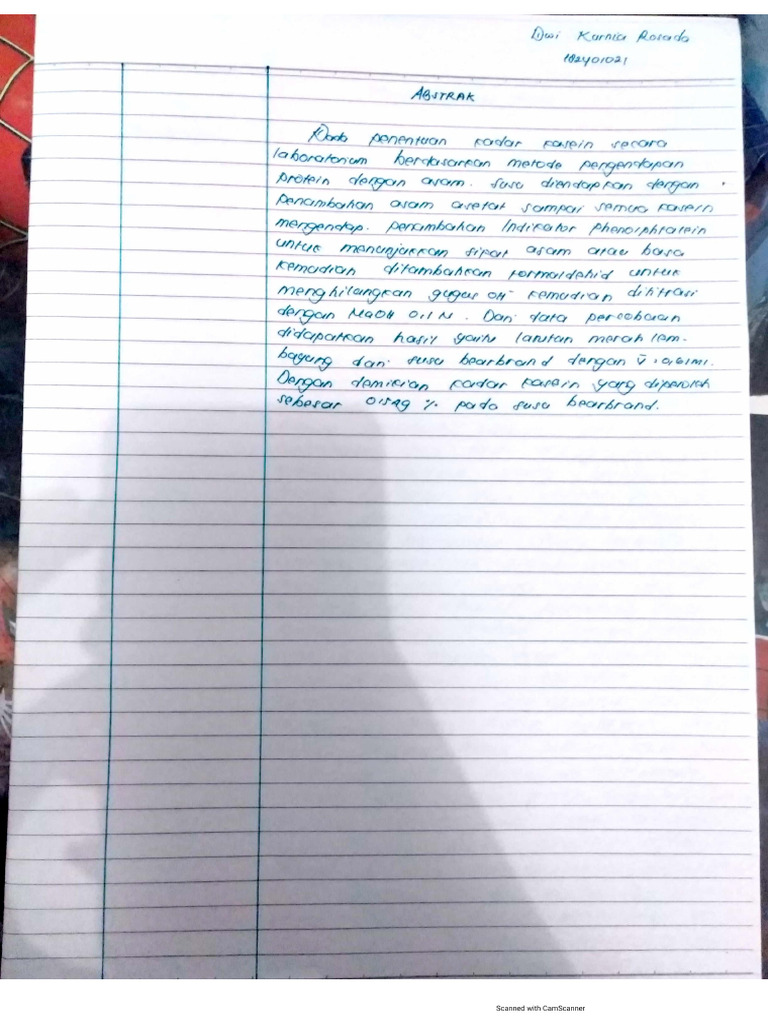 Dwi Kurnia Rosada
182401021
ABSTRAK
Pada penentuan kadar kasein secara
laboratorium berdasarkan metode pengendapan
protein dengan asam. susu diendapkan dengan
penambahan asam asetat sampai semua kasein
mengendap. penambahan Indikator phenolphtalein
untuk menunjukkan sifat asam atau basa
kemudian ditambahkan formaldehid untuk
menghilangkan gugus OH⁻ kemudian dititrasi
dengan NaOH 0,1 N. Dari data percobaan
didapatkan hasil yaitu larutan merah lem-
bayung dari susu bearbrand dengan v̄ = 0,61 ml.
Dengan demikian kadar kasein yang diperoleh
sebesar 0,549 % pada susu bearbrand.
Scanned with CamScanner